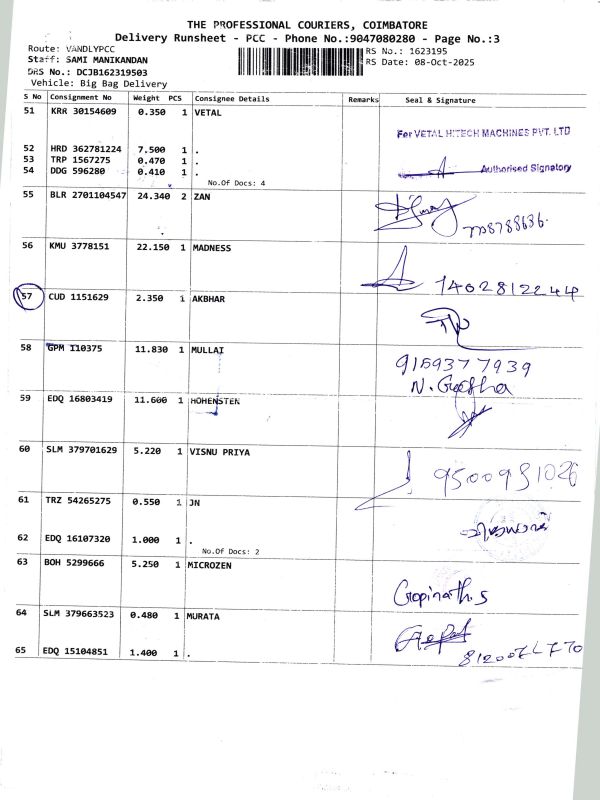 THE PROFESSIONAL COURIERS, COIMBATORE
Delivery Runsheet - PCC - Phone No.:9047080280 - Page No.:3
Route: VANDLYPCC
RS No.: 1623195
Staff: SAMI MANIKANDAN
RS Date: 08-Oct-2025
DRS No.: DCJB162319503
Vehicle: Big Bag Delivery
S No Consignment No Weight PCS Consignee Details Remarks Seal & Signature
51 KRR 30154609 0.350 1 VETAL
For VETAL HITECH MACHINES PVT. LTD
52 HRD 362781224 7.500 1 .
53 TRP 1567275 0.470 1 .
54 DDG 596280 0.410 1 .
Authorised Signatory
No.Of Docs: 4
55 BLR 2701104547 24.340 2 ZAN
56 KMU 3778151 22.150 1 MADNESS
7402812244
57 CUD 1151629 2.350 1 AKBHAR
58 GPM 110375 11.830 1 MULLAI
9159377939
N. Geetha
59 EDQ 16803419 11.600 1 HOHENSTEN
60 SLM 379701629 5.220 1 VISNU PRIYA
61 TRZ 54265275 0.550 1 JN
62 EDQ 16107320 1.000 1 .
No.Of Docs: 2
63 BOH 5299666 5.250 1 MICROZEN
Gopinath.S
64 SLM 379663523 0.480 1 MURATA
65 EDQ 15104851 1.400 1 .